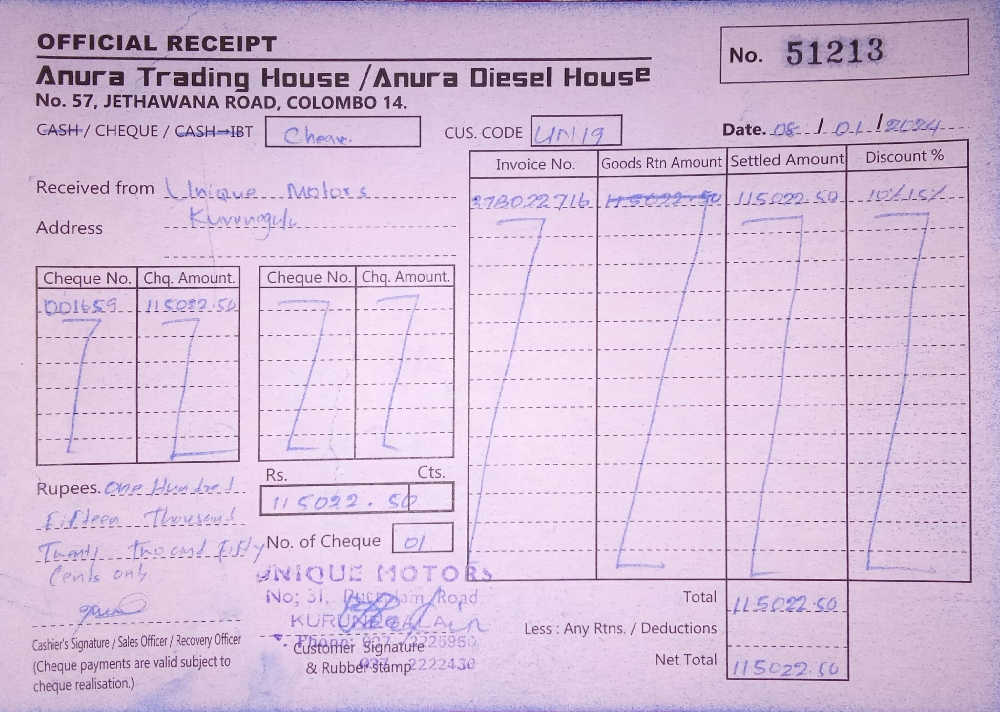 OFFICIAL RECEIPT
No. 51213
Anura Trading House /Anura Diesel House
No. 57, JETHAWANA ROAD, COLOMBO 14.
CASH / CHEQUE / CASH-IBT
CUS. CODE UN19
Date. 08 / 01 / 2024
Invoice No. Goods Rtn Amount Settled Amount Discount %
Received from Unique Motors
115022.50 115022.50
Address
Cheque No. Chq. Amount. Cheque No. Chq. Amount.
001659 115022.50
Rs. Cts.
Rupees. One Hundred
115022.50
Fifteen Thousand
Twenty two and Fifty
No. of Cheque 01
Cents only
UNIQUE MOTORS
No; 31, Puttalam Road
KURUNEGALA
Total 115022.50
Less : Any Rtns. / Deductions
Net Total 115022.50
Cashier's Signature / Sales Officer / Recovery Officer
Customer Signature
& Rubber stamp
2222430
(Cheque payments are valid subject to
cheque realisation.)